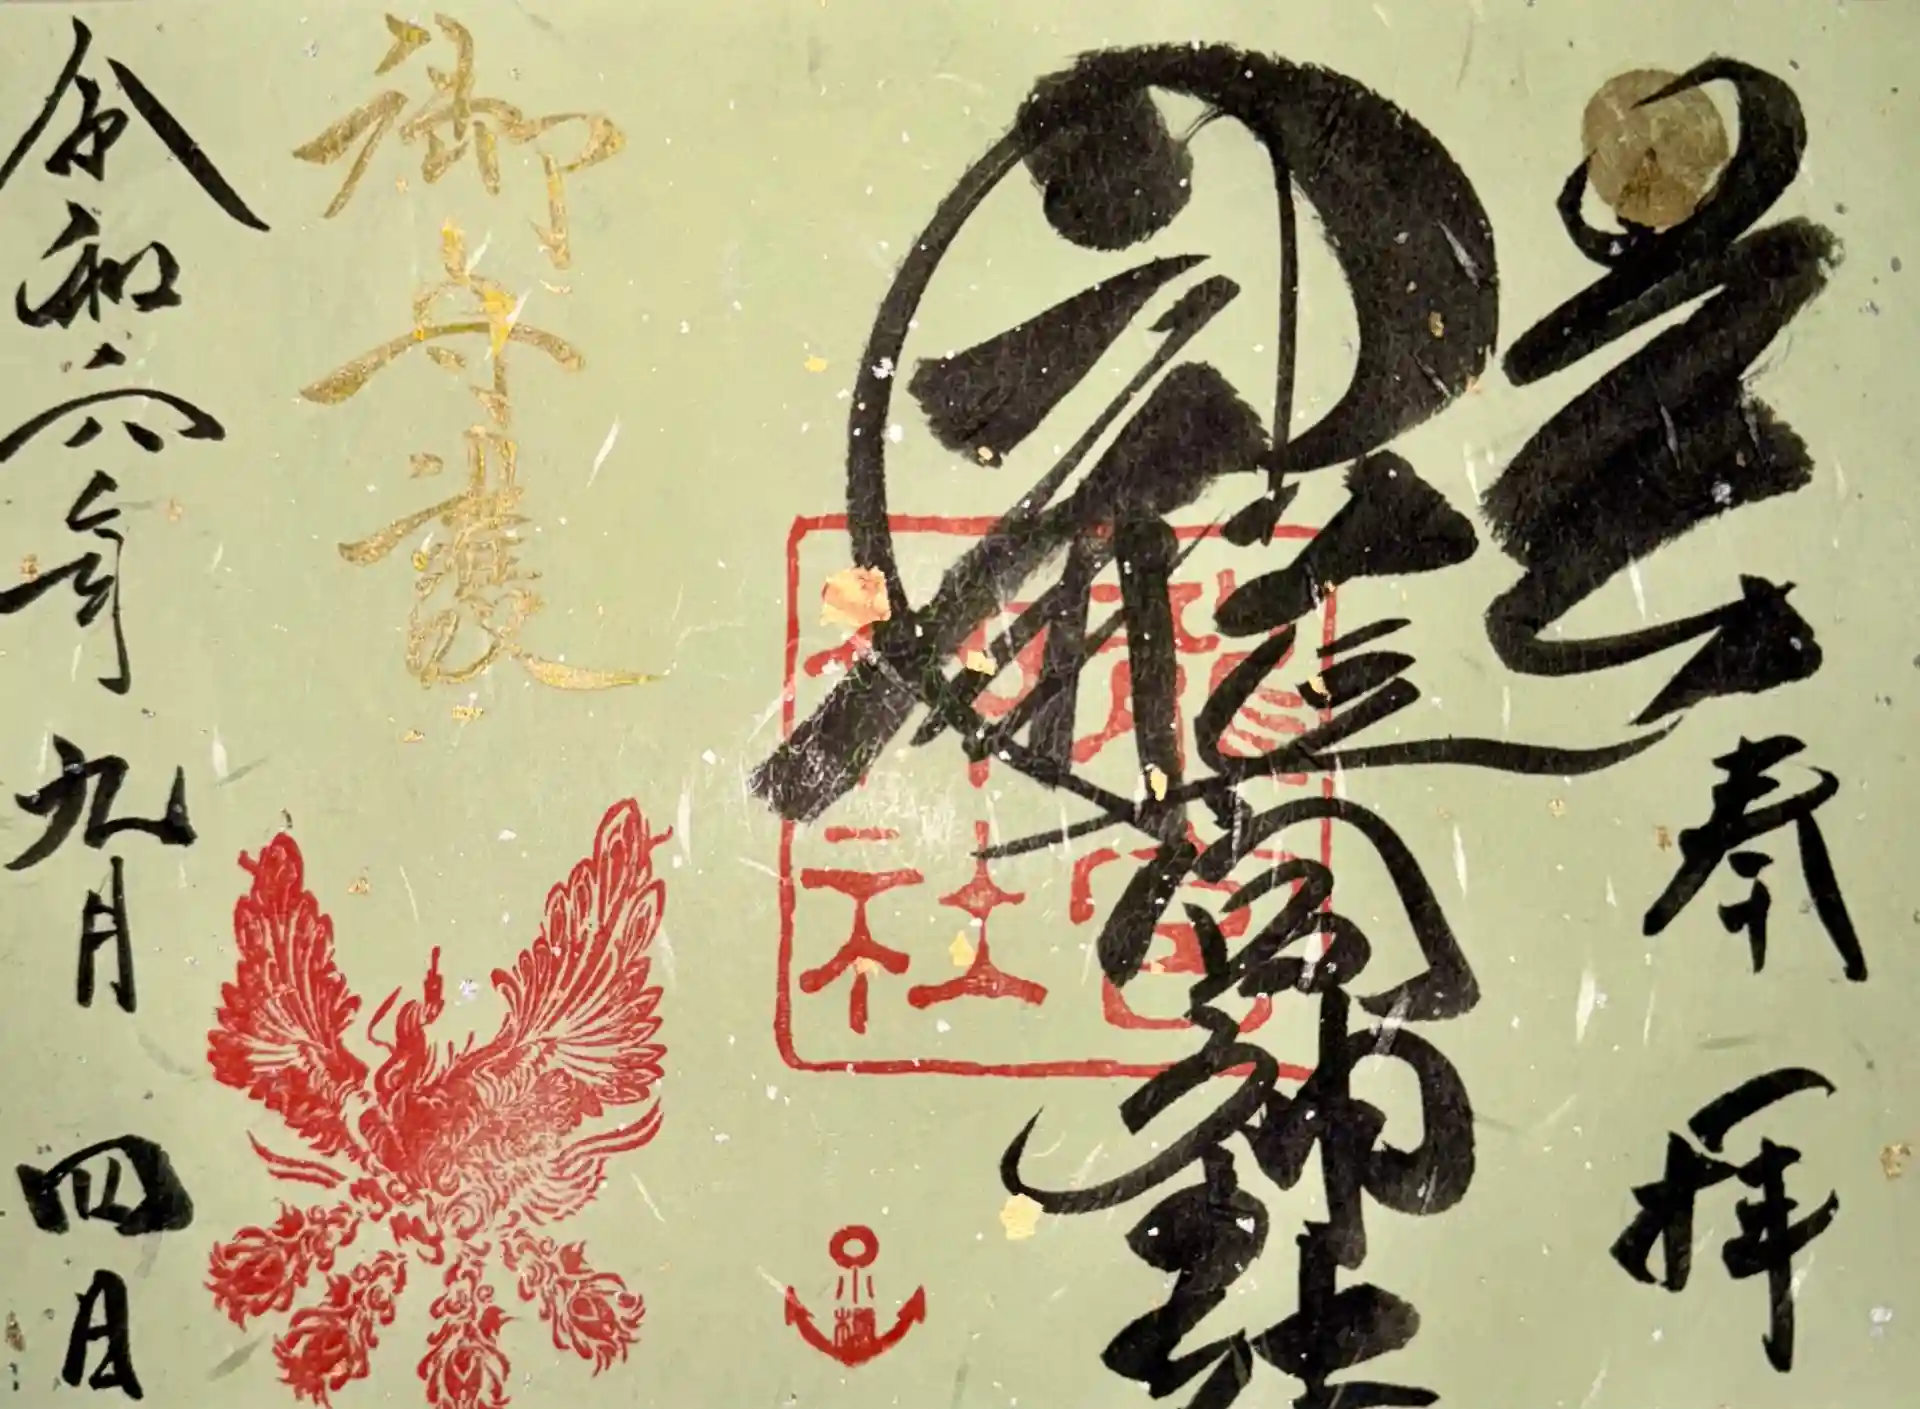 奉拝
龍宮神社
龍宮神社
小樽
御守護
令和六年九月四日